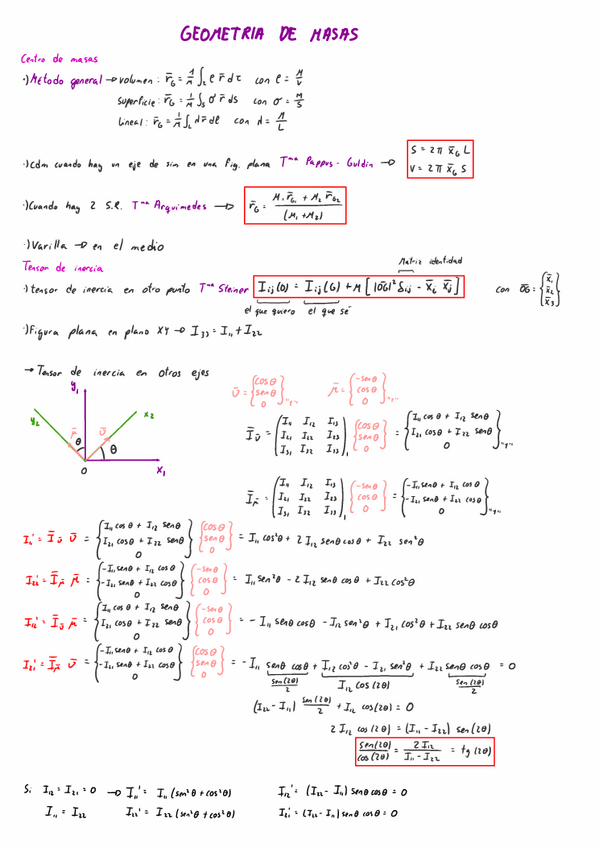 GEOMETRIA DE MASAS
Centro de masas
·) Método general → volumen: r̄_G = 1/M ∫_L ρ r̄ dτ con ρ = M/V
superficie: r̄_G = 1/M ∫_S σ r̄ ds con σ = M/S
Lineal: r̄_G = 1/M ∫_L λ r̄ dl con λ = M/L
·) Cdm cuando hay un eje de sim en una fig. plana T^ma Pappus - Guldin → S = 2π x̄_G L
V = 2π x̄_G S
·) Cuando hay 2 S.R. T^ma Arquimedes → r̄_G = (M₁ r̄_G1 + M₂ r̄_G2) / (M₁ + M₂)
·) Varilla → en el medio
Tensor de inercia
Matriz identidad
·) tensor de inercia en otro punto T^ma Steiner I_ij(O) = I_ij(G) + M [|OG|² δ_ij - x̄_i x̄_j] con OG = {x̄₁ x̄₂ x̄₃}
el que quiero el que sé
·) Figura plana en plano XY → I₃₃ = I₁₁ + I₂₂
→ Tensor de inercia en otros ejes
y₁
ῡ = {cosθ senθ 0}"1" μ̄ = {-senθ cosθ 0}"1"
y₂ x₂
μ̄ ῡ
θ θ
O x₁
Ī_ῡ = (I₁₁ I₁₂ I₁₃ I₂₁ I₂₂ I₂₃ I₃₁ I₃₂ I₃₃)₁ {cosθ senθ 0} = {I₁₁ cosθ + I₁₂ senθ I₂₁ cosθ + I₂₂ senθ 0}"1"
Ī_μ̄ = (I₁₁ I₁₂ I₁₃ I₂₁ I₂₂ I₂₃ I₃₁ I₃₂ I₃₃)₁ {-senθ cosθ 0} = {-I₁₁ senθ + I₁₂ cosθ -I₂₁ senθ + I₂₂ cosθ 0}"1"
I₁₁' = Ī_ῡ ῡ = {I₁₁ cosθ + I₁₂ senθ I₂₁ cosθ + I₂₂ senθ 0} {cosθ senθ 0} = I₁₁ cos²θ + 2 I₁₂ senθ cosθ + I₂₂ sen²θ
I₂₂' = Ī_μ̄ μ̄ = {-I₁₁ senθ + I₁₂ cosθ -I₂₁ senθ + I₂₂ cosθ 0} {-senθ cosθ 0} = I₁₁ sen²θ - 2 I₁₂ senθ cosθ + I₂₂ cos²θ
I₁₂' = Ī_ῡ μ̄ = {I₁₁ cosθ + I₁₂ senθ I₂₁ cosθ + I₂₂ senθ 0} {-senθ cosθ 0} = - I₁₁ senθ cosθ - I₁₂ sen²θ + I₂₁ cos²θ + I₂₂ senθ cosθ
I₂₁' = Ī_μ̄ ῡ = {-I₁₁ senθ + I₁₂ cosθ -I₂₁ senθ + I₂₂ cosθ 0} {cosθ senθ 0} = - I₁₁ senθ cosθ + I₁₂ cos²θ - I₂₁ sen²θ + I₂₂ senθ cosθ = 0
sen(2θ)/2 I₁₂ cos(2θ) sen(2θ)/2
(I₂₂ - I₁₁) sen(2θ)/2 + I₁₂ cos(2θ) = 0
2 I₁₂ cos(2θ) = (I₁₁ - I₂₂) sen(2θ)
sen(2θ)/cos(2θ) = 2 I₁₂/(I₁₁ - I₂₂) = tg(2θ)
Si I₁₂ = I₂₁ = 0 → I₁₁' = I₁₁ (sen²θ + cos²θ) I₁₂' = (I₂₂ - I₁₁) senθ cosθ = 0
I₁₁ = I₂₂ I₂₂' = I₂₂ (sen²θ + cos²θ) I₂₁' = (I₂₂ - I₁₁) senθ cosθ = 0